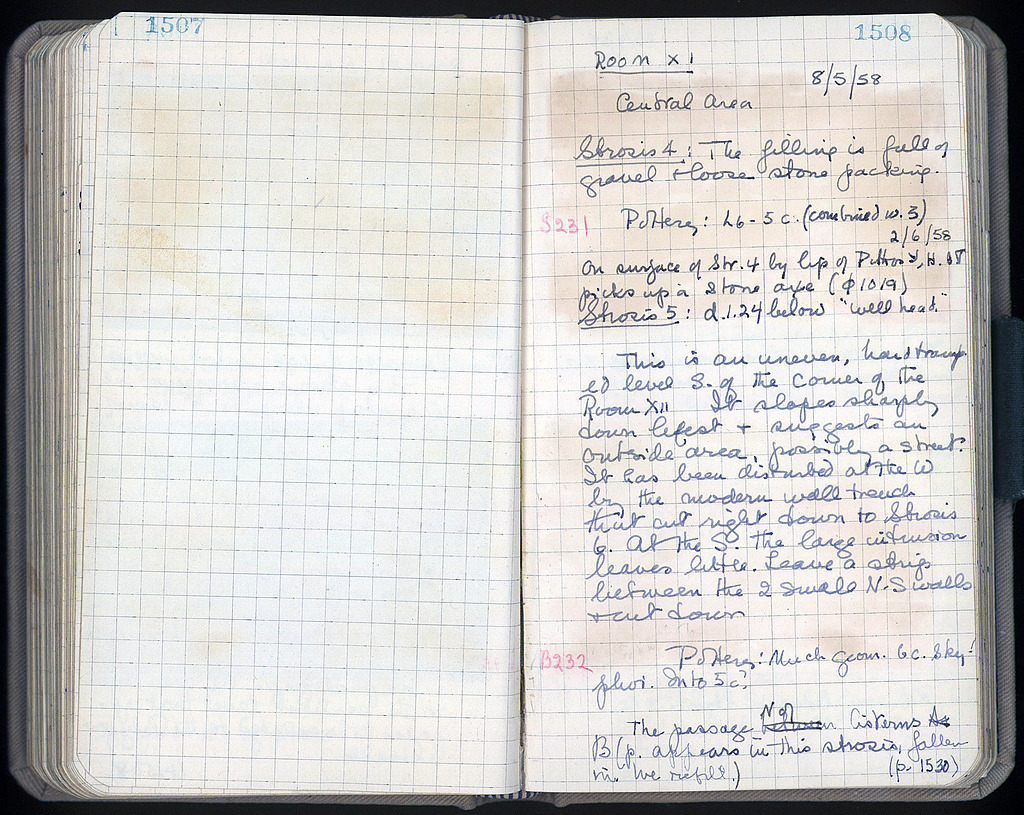 1507
1508
Room XI
8/5/58
Central Area
Strosis 4: The filling is full of
gravel + loose stone packing.
S231 Pottery: L6-5 c. (combined w. 3)
2/6/58
On surface of Str. 4 by lip of Pithos
picks up a stone axe (φ1019)
Strosis 5: d. 1.24 below "well head."
This is an uneven, hard tramp-
ed level S. of the corner of the
Room XII It slopes sharply
down West + suggests an
outside area, possibly a street.
It has been disturbed at the W
by the modern wall trench
that cut right down to Strosis
6. At the S. the large intrusion
leaves little. Leave a strip
between the 2 small N-S walls
+ cut down
B232 Pottery: Much geom. 6c. Sky-
phoi. Into 5 c.
The passage N of between Cisterns A+
B (p. appears in this strosis, fallen
in. We refill.) (p. 1530)